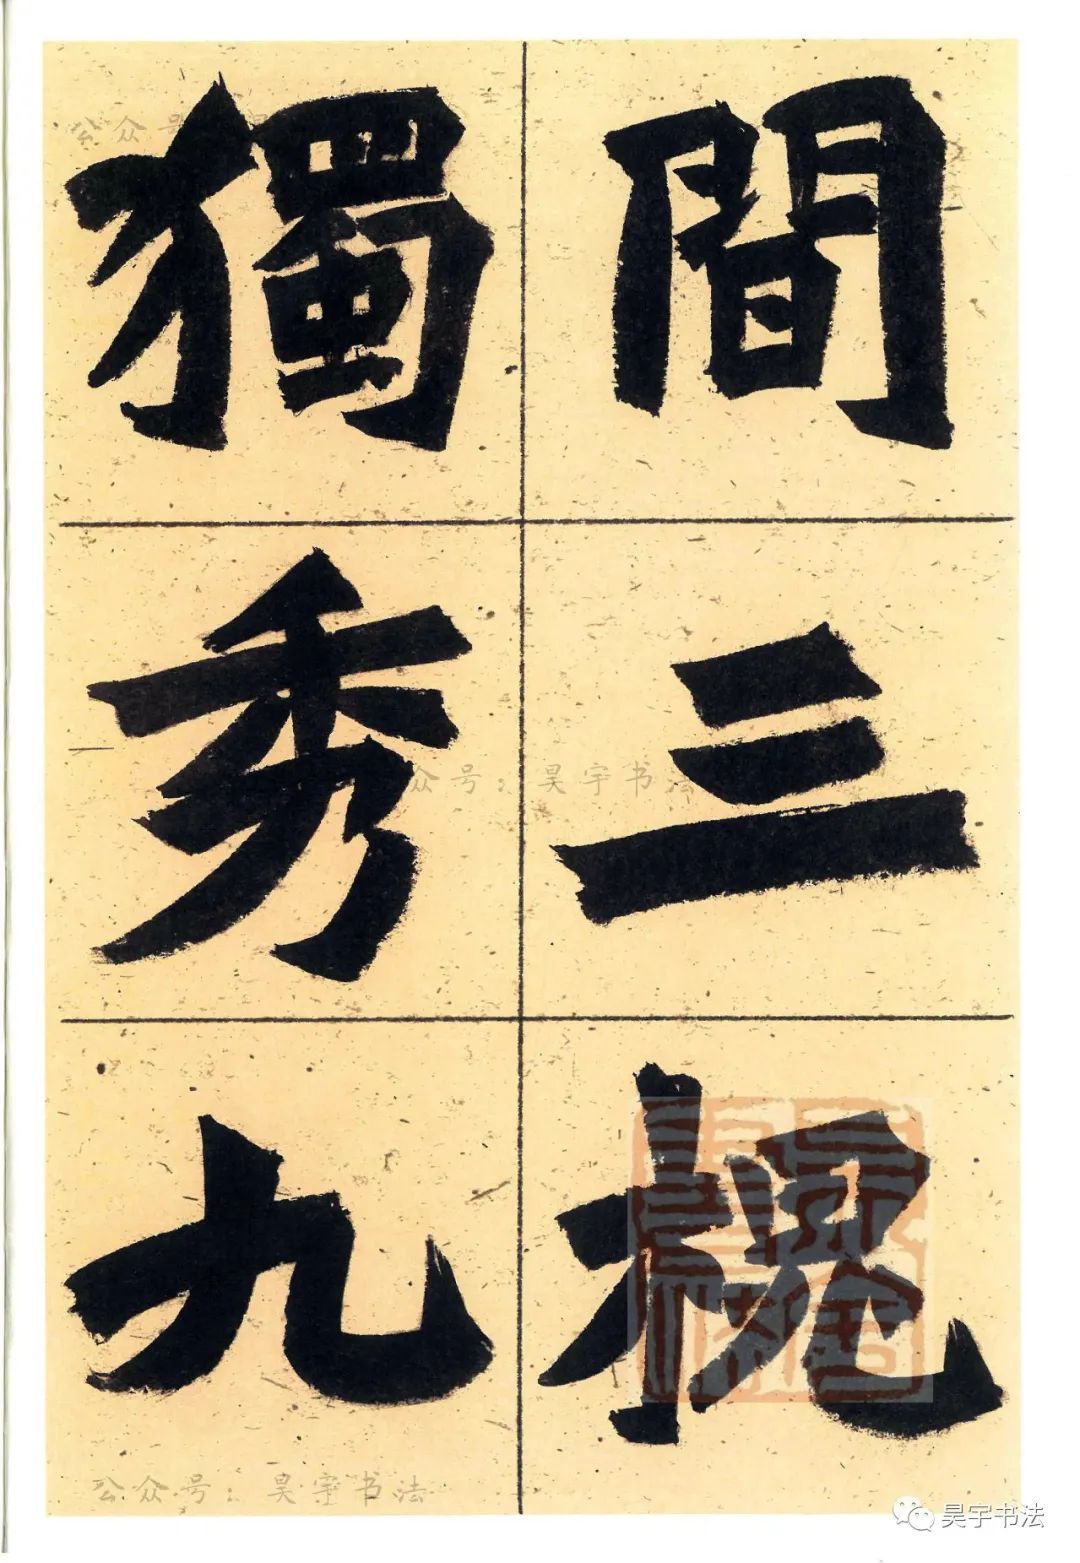 間三槐
獨秀九
公众号
众号：昊宇书法
公众号：昊宇书法
昊宇书法